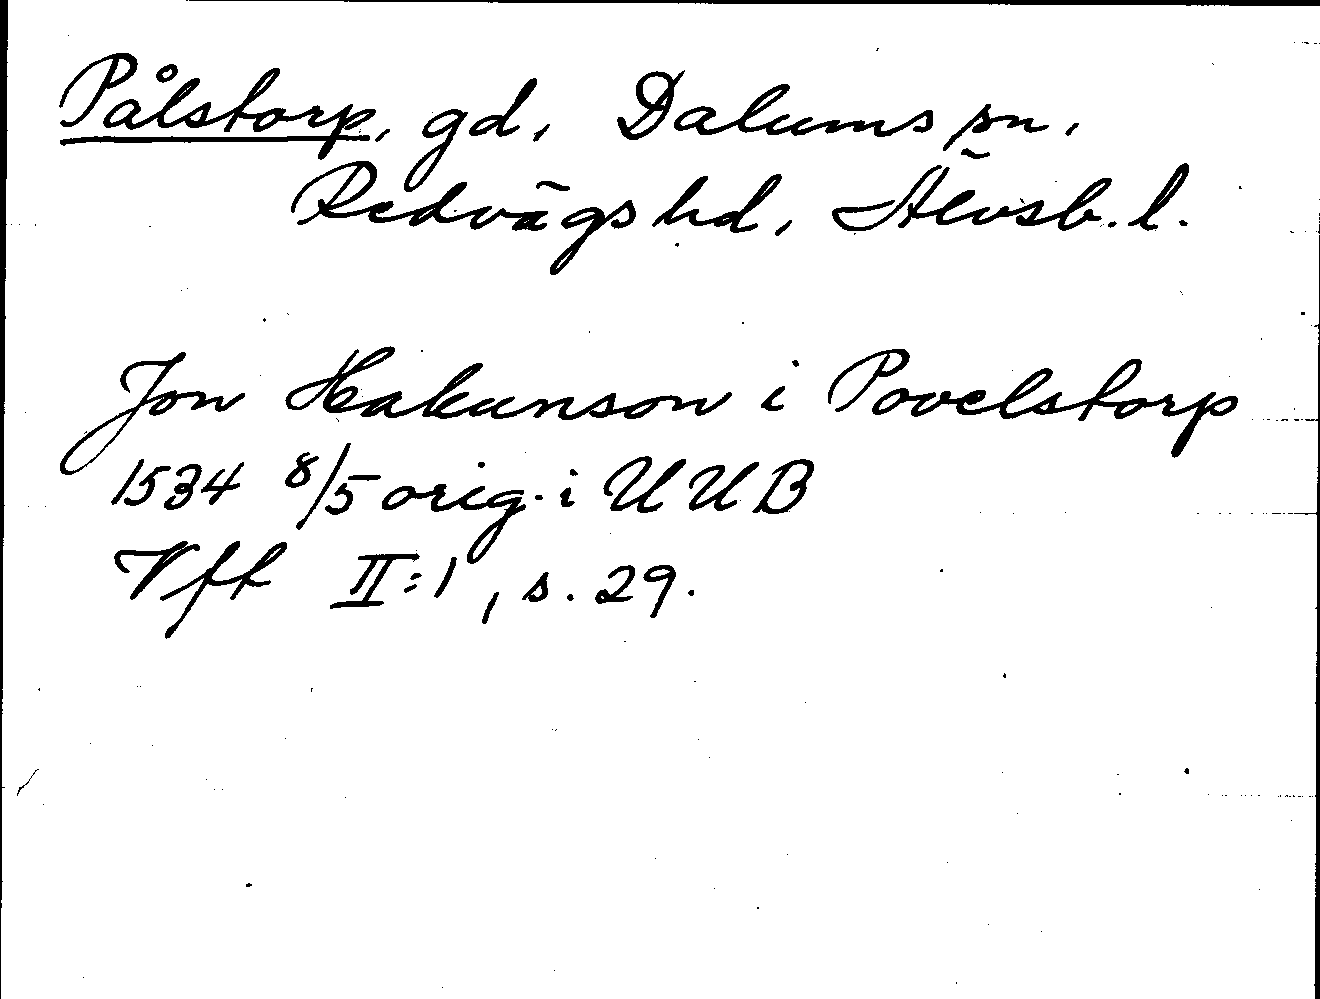 Pålstorp, gd, Dalums sn,
Redvägs hd, Älvsb. l.
Jon Hakunson i Povelstorp
1534 8/5 orig. i UUB
Vff II:1, s. 29.